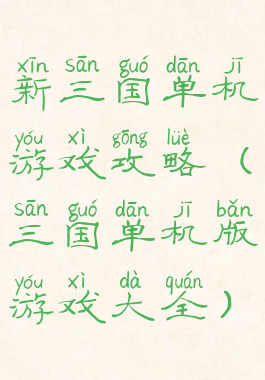 xīn sān guó dān jī
新三国单机
yóu xì gōng lüè
游戏攻略（
sān guó dān jī bǎn
三国单机版
yóu xì dà quán
游戏大全）